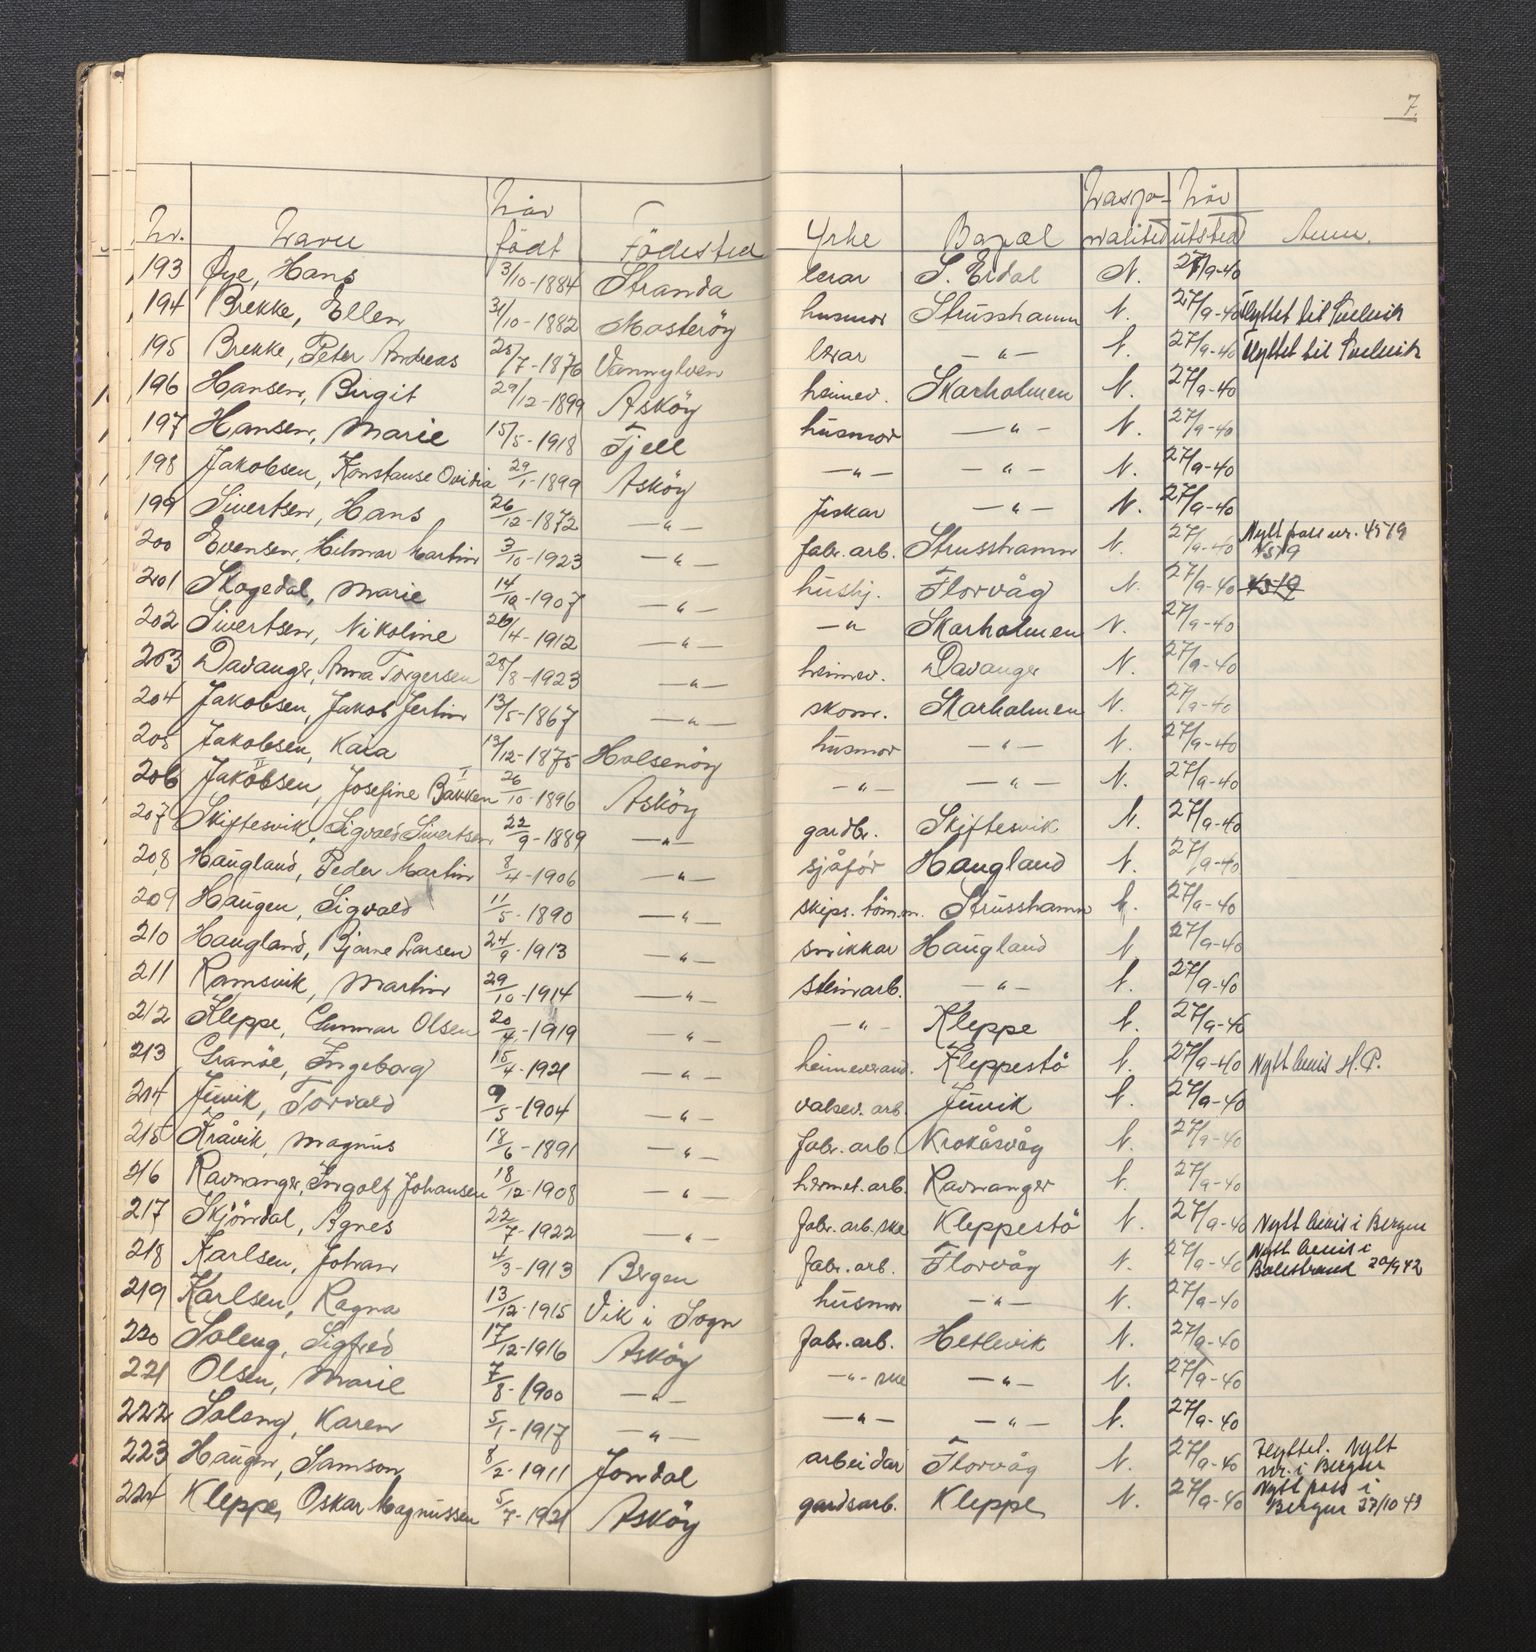 7.
Nr. Navn Når født Födested Yrke Bopæl Nasjonalitet Når utsted Anm.
193 Øye, Hans 3/10-1884 Stranda lærar S. Erdal N. 27/9-40
194 Brekke, Ellen 31/10-1882 Masteröy husmor Strusshamn N. 27/9-40 Flyttet til
195 Brekke, Peter Andreas 25/7-1876 Vannylven lærar —"— N. 27/9-40 Flyttet til
196 Hansen, Birgit 29/12-1899 Asköy heimev. Skarholmen N. 27/9-40
197 Hansen, Marie 15/5-1918 Fjell husmor —"— N. 27/9-40
198 Jakobsen, Konstanse Ovidia 29/1-1899 Asköy —"— —"— N. 27/9-40
199 Sivertsen, Hans 26/12-1872 —"— fiskar —"— N. 27/9-40
200 Evensen, Hilmar Martin 3/10-1923 —"— fabr. arb. Strusshamn N. 27/9-40 Nytt pass nr. 4579
201 Skogedal, Marie 14/12-1907 —"— hushj. Florvåg N. 27/9-40
202 Sivertsen, Nikoline 26/4-1912 —"— —"— Skarholmen N. 27/9-40
203 Davanger, Anna Torgersen 28/8-1923 —"— heimev. Davanger N. 27/9-40
204 Jakobsen, Jakob Jertin 13/5-1867 —"— skom. Skarholmen N. 27/9-40
205 Jakobsen, Kaia 13/12-1875 Holsenöy husmor —"— N. 27/9-40
206 Jakobsen, II Josefine Bakken I 26/10-1896 Asköy —"— —"— N. 27/9-40
207 Skiftesvik, Sigvald Sivertsen 22/9-1889 —"— gardbr. Skiftesvik N. 27/9-40
208 Haugland, Peder Martin 8/4-1906 —"— sjåför Haugland N. 27/9-40
209 Haugen, Sigvald 11/5-1890 —"— skips. tömm. Strusshamn N. 27/9-40
210 Haugland, Bjarne Larsen 24/9-1913 —"— snikkar Haugland N. 27/9-40
211 Ramsvik, Martin 29/10-1914 —"— steinarb. —"— N. 27/9-40
212 Kleppe, Gunnar Olsen 20/4-1919 —"— —"— Kleppe N. 27/9-40
213 Granöe, Ingeborg 15/4-1921 —"— heimeverand. Kleppestö N. 27/9-40 Nytt bevis H.P.
214 Juvik, Torvald 9/5-1904 —"— valsev. arb. Juvik N. 27/9-40
215 Kråvik, Magnus 18/6-1891 —"— fabr. arb. Krokåsvåg N. 27/9-40
216 Ravnanger, Ingolf Johansen 18/12-1908 —"— hermet. arb. Ravnanger N. 27/9-40
217 Skjöndal, Agnes 22/7-1922 —"— fabr. arb. ske Kleppestö N. 27/9-40 Nytt bevis i Bergen
218 Karlsen, Johan 4/3-1913 Bergen fabr. arb. Florvåg N. 27/9-40 Nytt bevis i
Balestrand 20/9 42
219 Karlsen, Ragna 13/12-1915 Vik i Sogn husmor —"— N. 27/9-40
220 Soleng, Sigfred 17/12-1916 Asköy fabr. arb. Hetlevik N. 27/9-40
221 Olsen, Marie 7/8-1900 —"— —"— ske —"— N. 27/9-40
222 Soleng, Karen 5/1-1917 —"— —"— —"— N. 27/9-40
223 Haugen, Samson 8/2-1911 Jondal arbeidar Florvåg N. 27/9-40 Flyttet. Nytt
nr. i Bergen
224 Kleppe, Oskar Magnussen 5/7-1921 Asköy gardsarb. Kleppe N. 27/9-40 Nytt pass i
Bergen 27/10 43